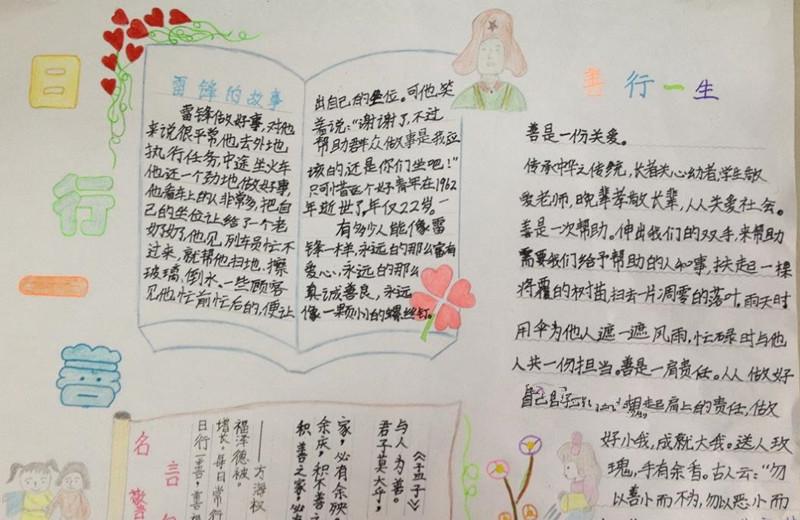 日
行
一
善
雷锋的故事
雷锋做好事,对他
来说很平常,他去外地
执行任务,中途坐火车
他还一个劲地做好事,
他看车上的人非常多,把自
己的坐位让给了一个老
奶奶,他见列车员忙不
过来,就帮他扫地、擦
玻璃、倒水。一些顾客
见他忙前忙后的,便让
出自己的坐位。可他笑
着说:“谢谢了,不过
帮助群众做事是我应
该的,还是你们坐吧!”
只可惜这个好青年在1962
年逝世了,年仅22岁。
有多少人能像雷
锋一样,永远的那么富有
爱心,永远的那么
真诚善良,永远
像一颗小小的螺丝钉。
善行一生
善是一份关爱。
传承中华之传统,长者关心幼者,学生敬
爱老师,晚辈孝敬长辈,人人关爱社会。
善是一次帮助。伸出我们的双手,来帮助
需要我们给予帮助的人和事,扶起一棵
将覆的树苗,扫去一片凋零的落叶,雨天时
用伞为他人遮一遮风雨,忙碌时与他
人共一份担当。善是一肩责任。人人做好
自己,担起肩上的责任,做
好小我,成就大我。送人玫
瑰,手有余香。古人云:“勿
以善小而不为,勿以恶小而
名言警
《孟子》
与人为善。
君子莫大乎
家,必有余殃。
余庆,积不善之
积善之家,必有
——方海权
福泽德被。
增长,每日常行
日行一善,善